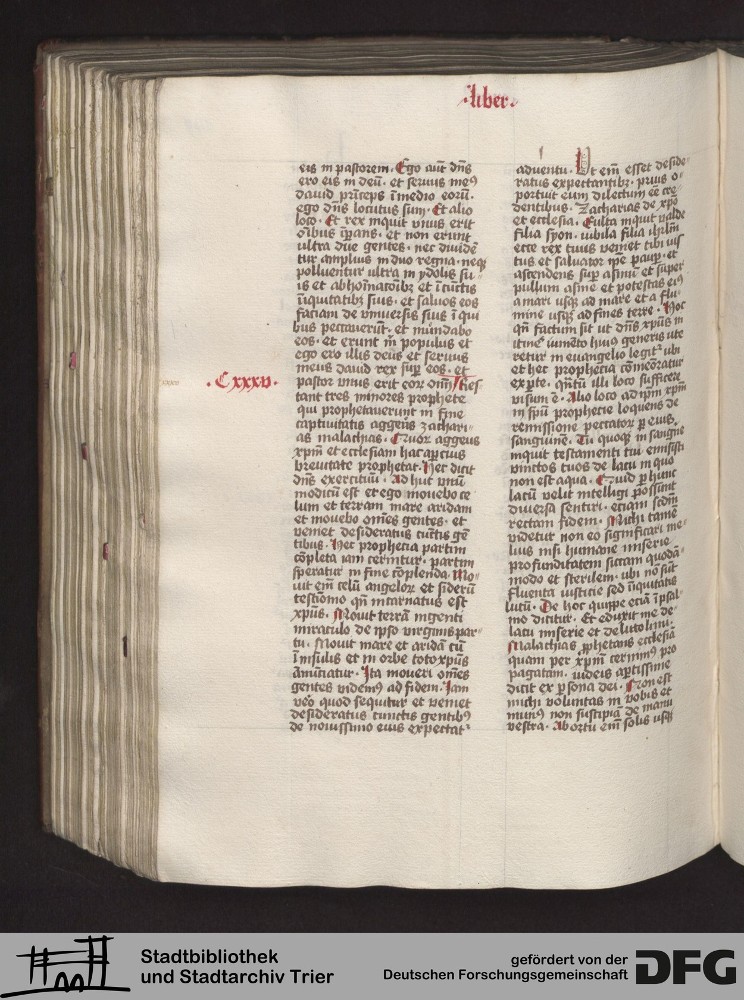 ·liber·
eis in pastorem· Ego aut̄ dn̄s
ero eis in deū· et seruus meꝰ
dauid prīceps ī medio eorū·
ego dn̄s locutus sum· Et alio
loco· Et rex inquit vnus erit
oībus īpans· et non erunt
ultra due gentes· nec diuidē
tur amplius in duo regna· neqꝫ
polluentur ultra in ydolis su
is et abhoīnacoībꝫ et ī cūctis
iniquitatibꝫ suis· et saluos eos
faciam de vniuersis suis ī qui
bus peccauerūt· et mundabo
eos· et erunt m̄ populus et
ego ero illis deus et seruus
meus dauid rex suꝑ eos· et
·Cxxxv·
xxxv
pastor vnus erit eoꝝ oīm Res
tant tres minores prophete
qui prophetauerunt in fine
captiuitatis aggeus zachari
as malachias· Quoꝝ aggeus
xp̄m et ecclesiam hac aꝑcius
breuitate prophetat· Hec dicit
dn̄s exercituū· Adhuc vnū
modicū est et ego mouebo ce
lum et terram mare aridam
et mouebo om̄es gentes· et
veniet desideratus cūctis gē
tibus· Hec prophecia partim
cōpleta iam cernitur· partim
speratur in fine cōplenda· Mo
uit em̄ celū angeloꝝ et siderū
testīonio qn̄ incarnatus est
xp̄us· Mouit terrā ingenti
miraculo de ipso virginis par
tu· Mouit mare et aridā cū
ī insulis et in orbe toto xp̄us
anūciatur· Ita moueri om̄es
gentes videmꝰ ad fidem· Iam
vēo quod sequitur et veniet
desideratus cunctis gentibꝰ
de nouissimo eius expectat
aduentu· Ut em̄ esset deside
ratus expectantibꝫ· prius o
portuit eum dilectum eē cre
dentibus· Zacharias de xp̄o
et ecclesia· Exulta inquit valde
filia syon· iubila filia ihrlm̄
ecce rex tuus veniet tibi ius
tus et saluator ip̄e pauꝑ· et
ascendens suꝑ asinū et super
pullum asine et potestas eiꝰ
a mari usqꝫ ad mare et a flu
mine usqꝫ ad fines terre· Hoc
qn̄ factum sit ut dn̄s xp̄us in
itinē iumēto huiꝰ generis ute
retur in euangelio legitʳ ubi
et hec prophecia cōmēoratur
ex ꝑte· qn̄tū illi loco sufficere
visum ē· Alio loco ad ip̄m xp̄m
in sp̄u prophecie loquens de
remissione peccatoꝝ ꝑ eius
sanguinē· Tu quoqꝫ in sangne
inquit testamenti tui emisisti
vinctos tuos de lacu in quo
non est aqua· Quid ꝑ hunc
lacū velit intelligi possunt
diuersa sentiri· eciam scdm̄
rectam fidem· Michi tamē
videtur non eo significari me
lius nisi humane miserie
profunditatem siccam quodā
modo et sterilem· ubi nō sūt
fluenta iusticie sed īiquitatis
lutū· De hoc quippe eciā ī psal
mo dicitur· Et eduxit me de
lacu miserie et de luto limi·
Malachias ꝓphetans ecclesiā
quam per xp̄m cernimꝰ pro
pagatam· iudeis aꝑtissime
dicit ex ꝑsona dei· Non est
michi voluntas in vobis et
munꝰ non suscipiā de manu
vestra· Ab ortu em̄ solis usqꝫ
Stadtbibliothek
und Stadtarchiv Trier
gefördert von der
Deutschen Forschungsgemeinschaft
DFG